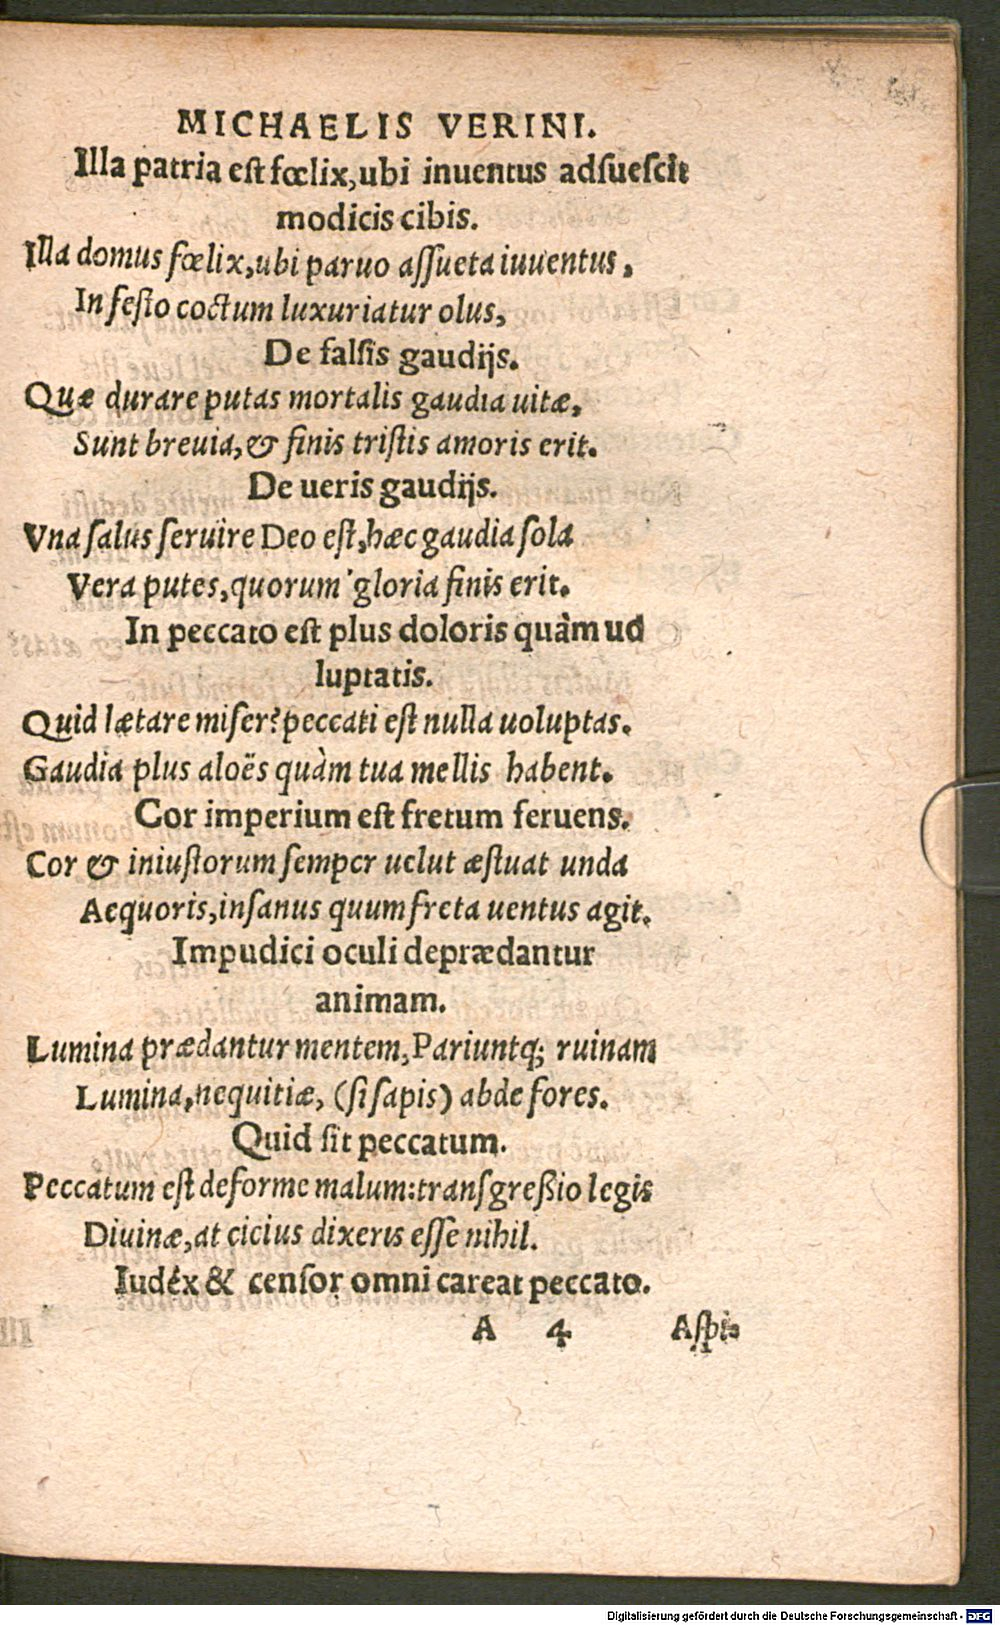 MICHAELIS VERINI.
Illa patria est fœlix, ubi inuentus adsuescit
modicis cibis.
Illa domus fœlix, ubi paruo assueta iuuentus,
In festo coctum luxuriatur olus,
De falsis gaudijs.
Quæ durare putas mortalis gaudia uitæ,
Sunt breuia, & finis tristis amoris erit.
De ueris gaudijs.
Vna salus seruire Deo est, hæc gaudia sola
Vera putes, quorum gloria finis erit.
In peccato est plus doloris quàm uo
luptatis.
Quid lætare miser? peccati est nulla uoluptas.
Gaudia plus aloës quàm tua mellis habent.
Cor imperium est fretum feruens.
Cor & iniustorum semper uelut æstuat unda
Aequoris, insanus quum freta uentus agit.
Impudici oculi deprædantur
animam.
Lumina prædantur mentem, Pariuntq; ruinam
Lumina, nequitiæ, (si sapis) abde fores.
Quid sit peccatum.
Peccatum est deforme malum: transgreßio legis
Diuinæ, at cicius dixeris esse nihil.
Iudex & censor omni careat peccato.
A 4 Aspi
Digitalisierung gefördert durch die Deutsche Forschungsgemeinschaft - DFG